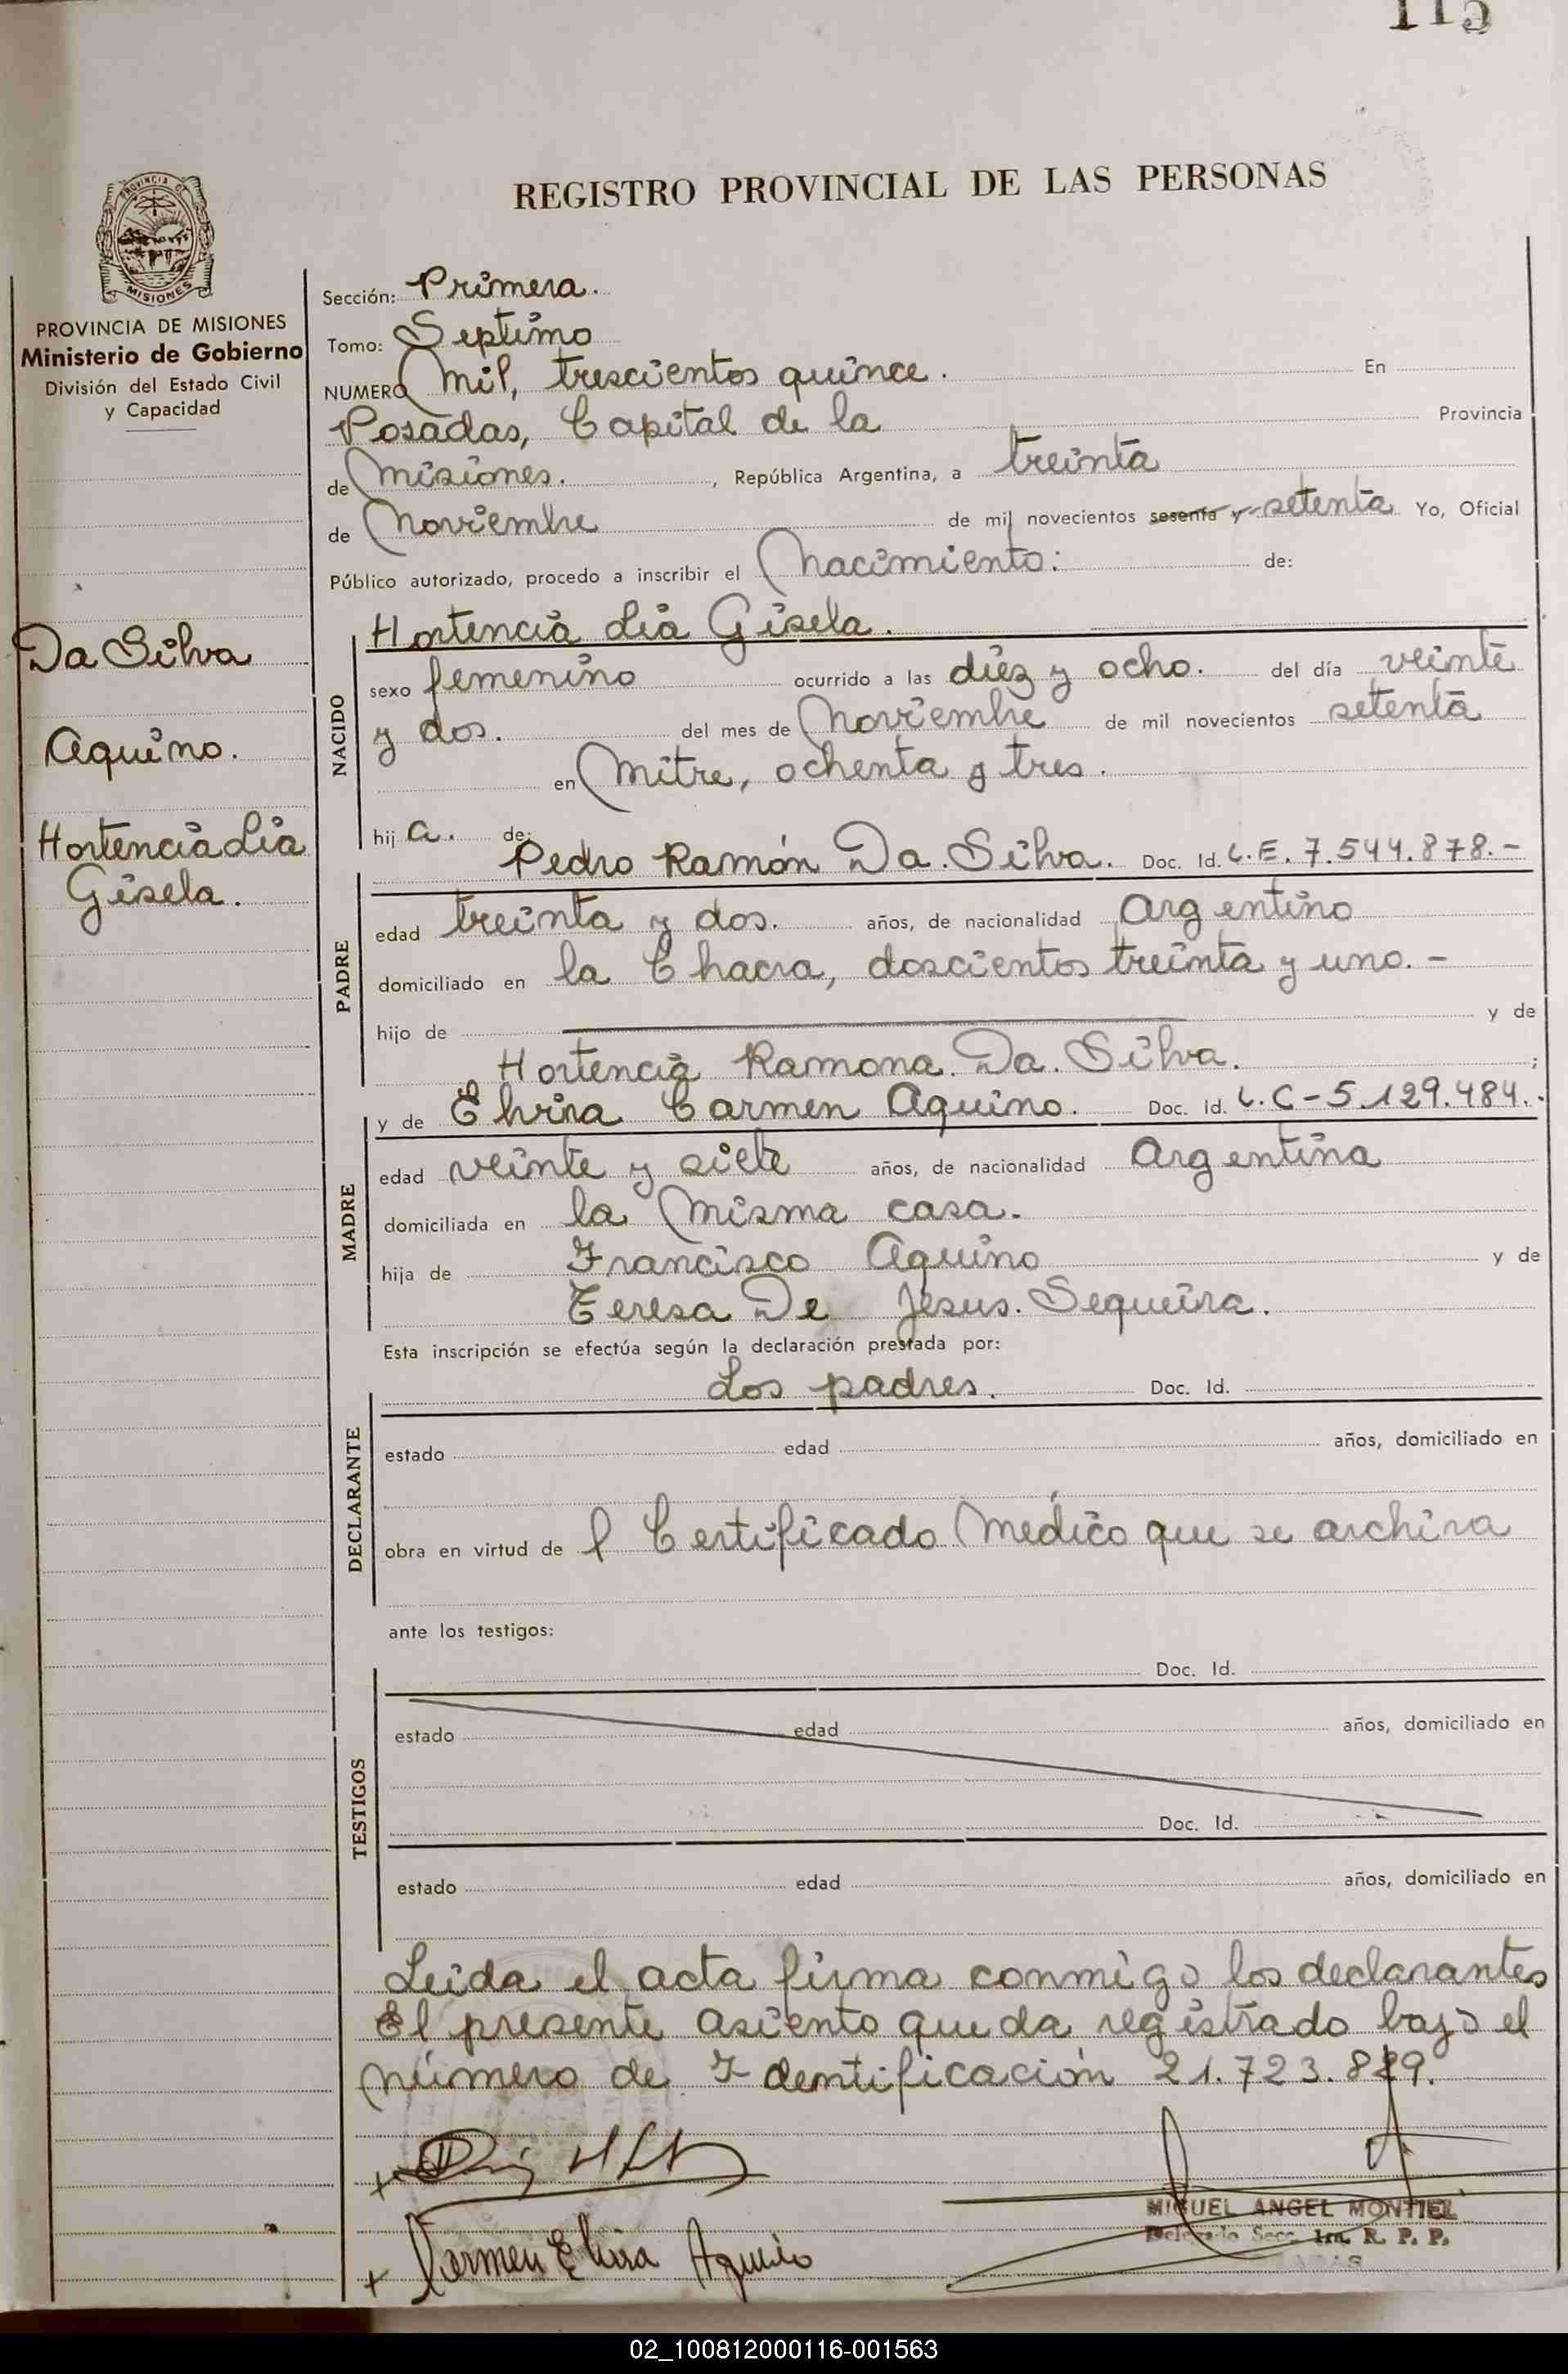 115
REGISTRO PROVINCIAL DE LAS PERSONAS
PROVINCIA DE MISIONES
Ministerio de Gobierno
División del Estado Civil
y Capacidad
Da Silva
Aquino.
Hortencia Lia
Gisela.
Sección: Primera.
Tomo: Septimo
NUMERO Mil, trescientos quince. En
Posadas, Capital de la Provincia
de Misiones. , República Argentina, a treinta
de Noviembre de mil novecientos sesenta y setenta Yo, Oficial
Público autorizado, procedo a inscribir el Nacimiento: de:
NACIDO
Hortencia Lia Gisela.
sexo femenino ocurrido a las diez y ocho. del día veinte
y dos. del mes de Noviembre de mil novecientos setenta
en Mitre, ochenta y tres.
hij a. de:
Pedro Ramón Da Silva. Doc. Id. L.E. 7.544.878.-
PADRE
edad treinta y dos. años, de nacionalidad Argentino
domiciliado en la Chacra, doscientos treinta y uno.-
hijo de y de
Hortencia Ramona. Da. Silva. ;
y de Elvira Carmen Aquino. Doc. Id. L.C-5.129.484.-
MADRE
edad veinte y siete años, de nacionalidad Argentina
domiciliada en la Misma casa.
hija de Francisco Aquino y de
Teresa De Jesus. Sequeira.
Esta inscripción se efectúa según la declaración prestada por:
Los padres. Doc. Id.
DECLARANTE
estado edad años, domiciliado en
obra en virtud de l Certificado Médico que se archiva
ante los testigos:
Doc. Id.
TESTIGOS
estado edad años, domiciliado en
Doc. Id.
estado edad años, domiciliado en
Leida el acta firma conmigo los declarantes
El presente asiento queda registrado bajo el
número de Identificación 21.723.829.
Carmen Elvira Aquino
MIGUEL ANGEL MONTIEL
Delegado Secc. 1ra. R. P. P.
02_100812000116-001563